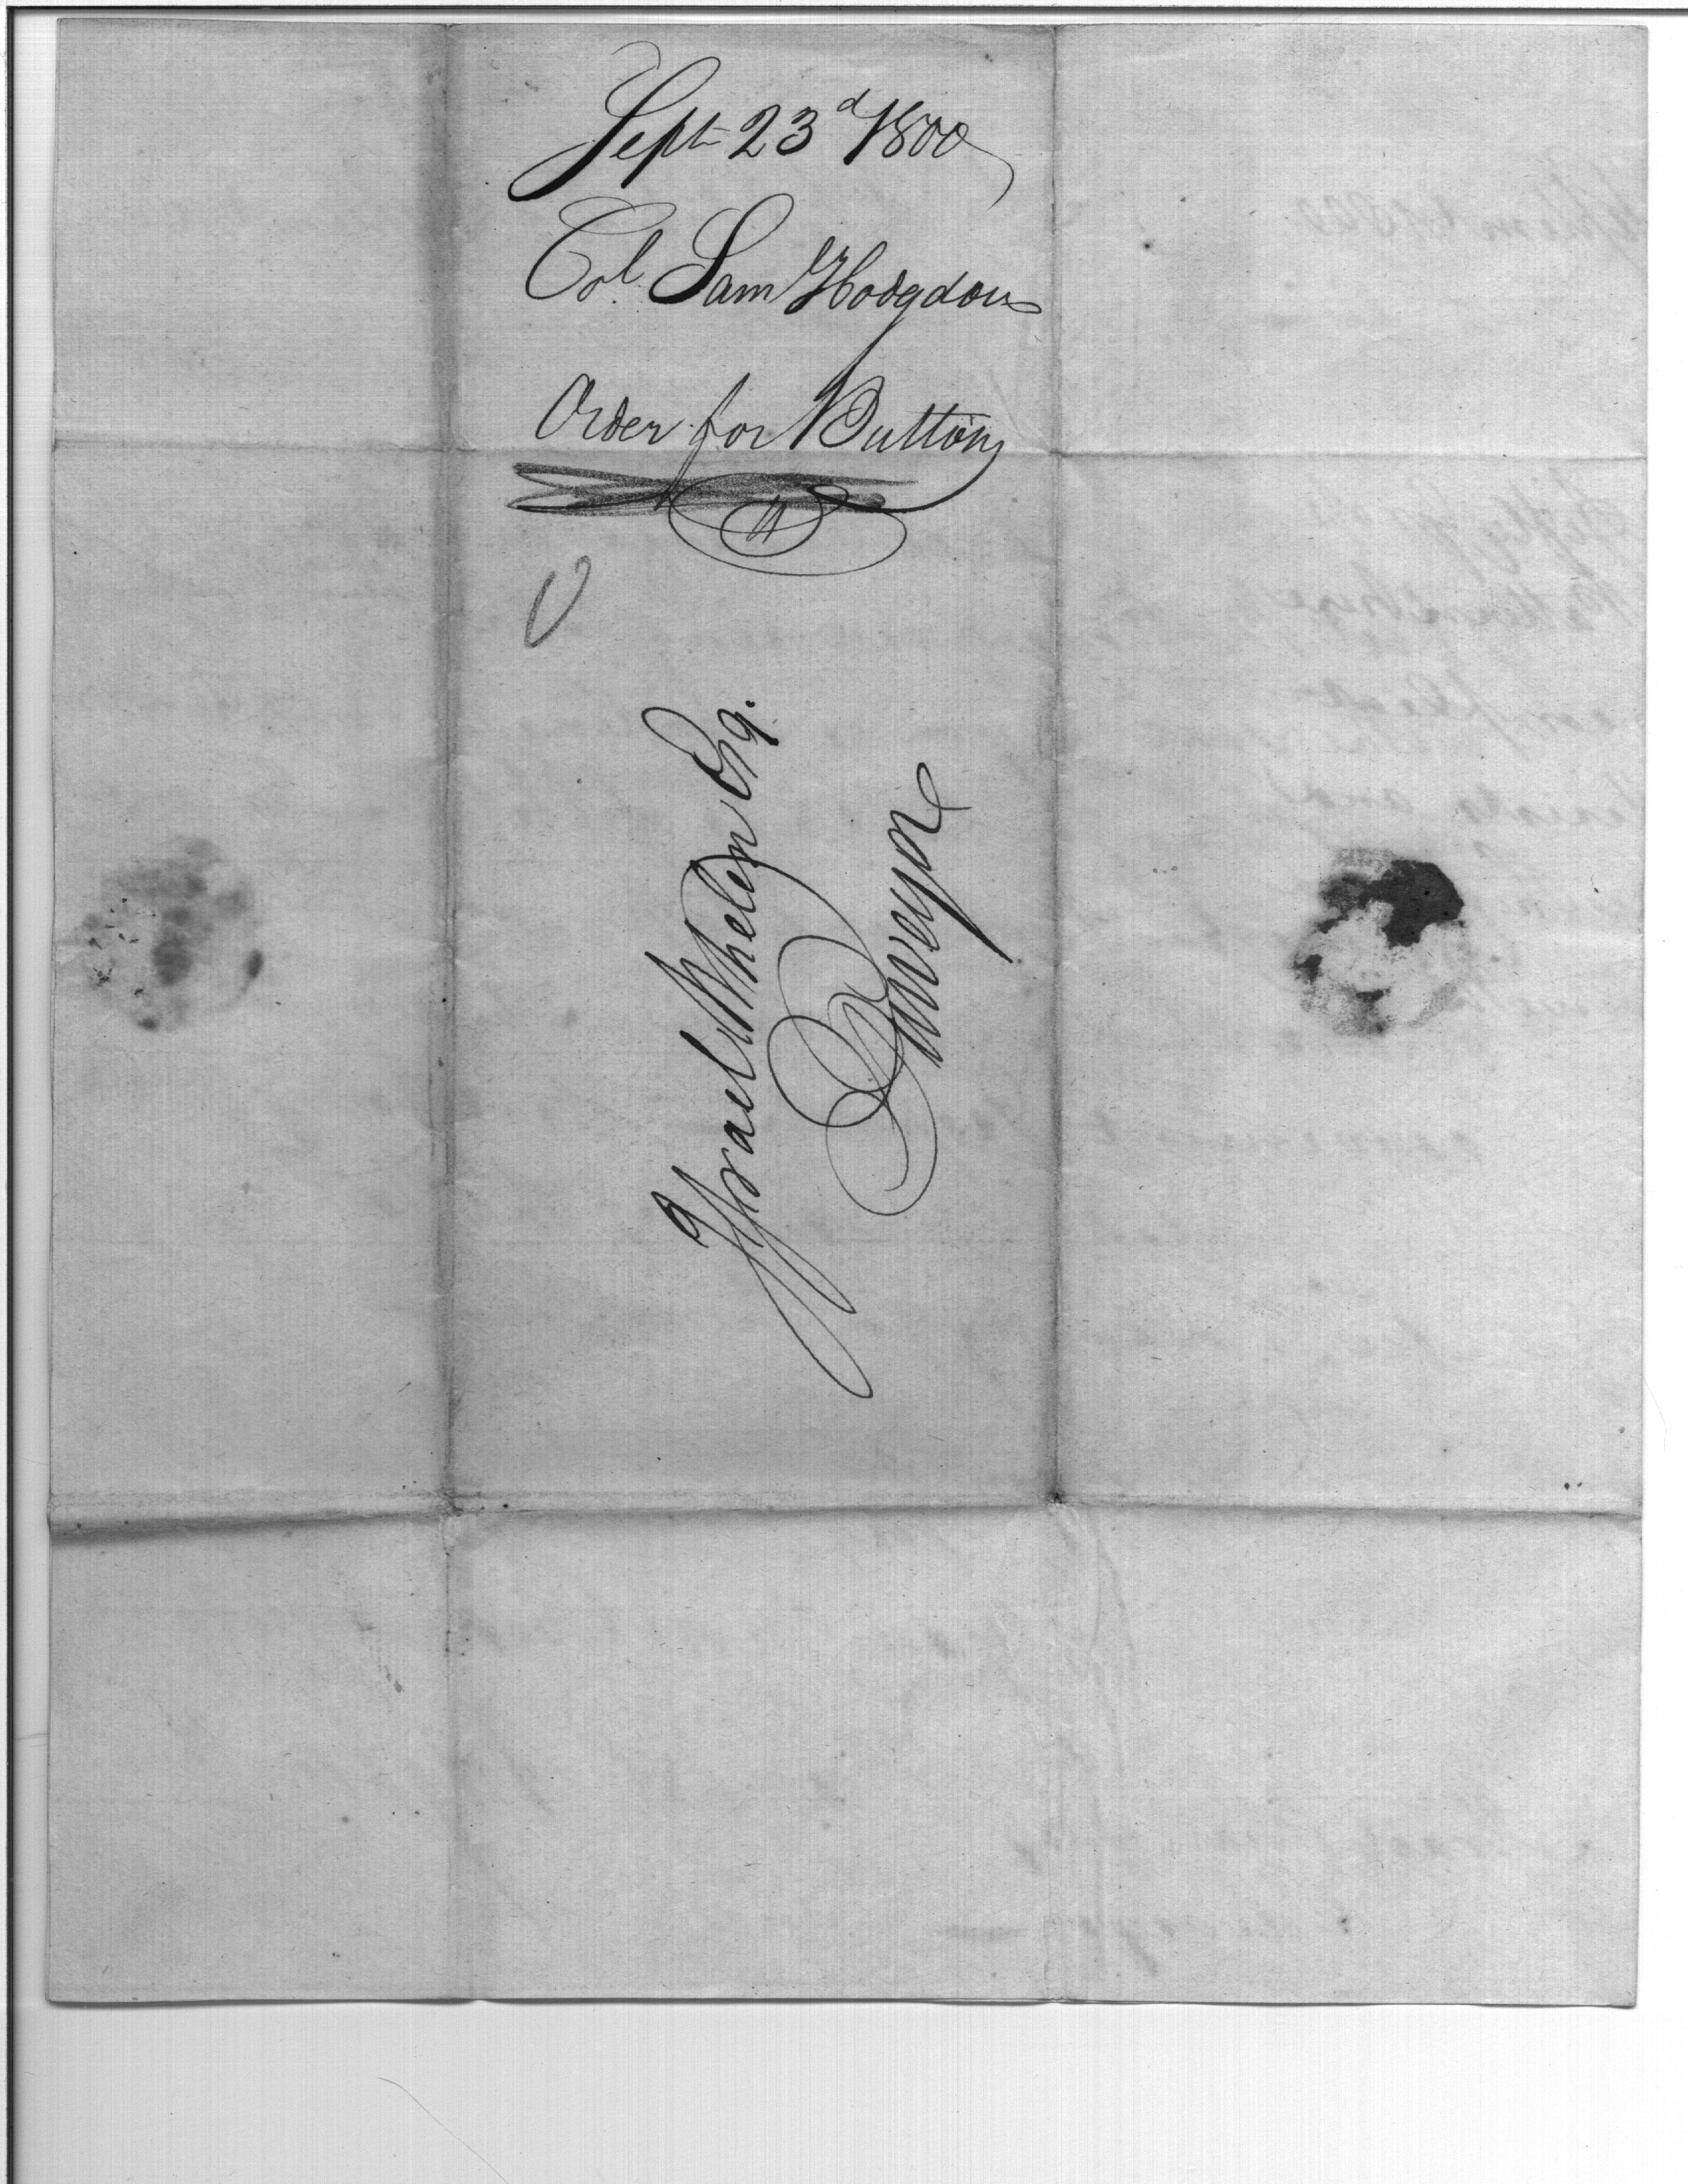 Sept 23d 1800
Col. Sam Hodgdon
Order for Buttons
Israel Whelen Esq.
Purveyor